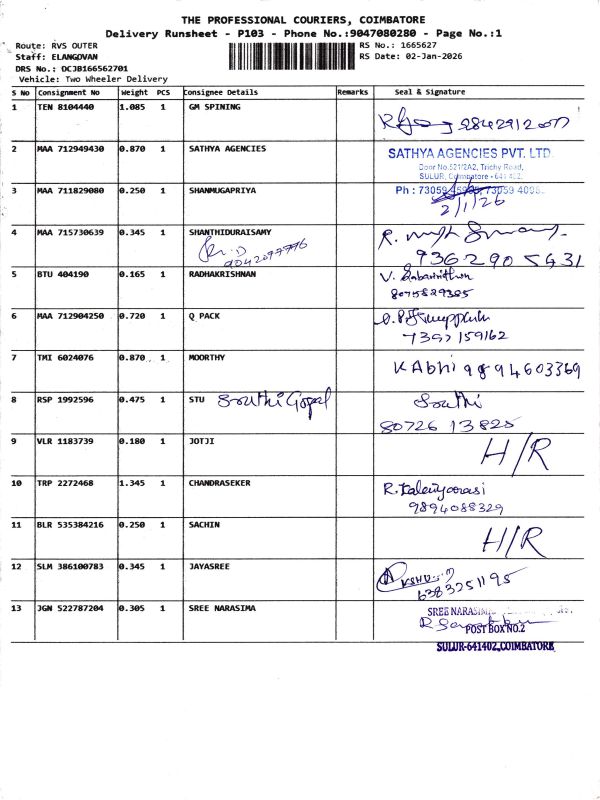 THE PROFESSIONAL COURIERS, COIMBATORE
Delivery Runsheet - P103 - Phone No.:9047080280 - Page No.:1
Route: RVS OUTER RS No.: 1665627
Staff: ELANGOVAN RS Date: 02-Jan-2026
DRS No.: OCJB166562701
Vehicle: Two Wheeler Delivery
S No Consignment No Weight PCS Consignee Details Remarks Seal & Signature
1 TEN 8104440 1.085 1 GM SPINING
2 MAA 712949430 0.870 1 SATHYA AGENCIES SATHYA AGENCIES PVT. LTD.
Door No.521/2A2, Trichy Road,
SULUR, Coimbatore - 641 402.
3 MAA 711829080 0.250 1 SHANMUGAPRIYA Ph : 73059
2/1/26
4 MAA 715730639 0.345 1 SHANTHIDURAISAMY R.
9362905431
5 BTU 404190 0.165 1 RADHAKRISHNAN V.
8075829385
6 MAA 712904250 0.720 1 Q PACK
7397159162
7 TMI 6024076 0.870 1 MOORTHY K Abhi 9894603369
8 RSP 1992596 0.475 1 STU Southi Gopal Southi
80726 13825
9 VLR 1183739 0.180 1 JOTJI H/R
10 TRP 2272468 1.345 1 CHANDRASEKER R.
9894088329
11 BLR 535384216 0.250 1 SACHIN H/R
12 SLM 386100783 0.345 1 JAYASREE
6383251195
13 JGN 522787204 0.305 1 SREE NARASIMA SREE
POST BOX NO.2
SULUR-641402,COIMBATORE